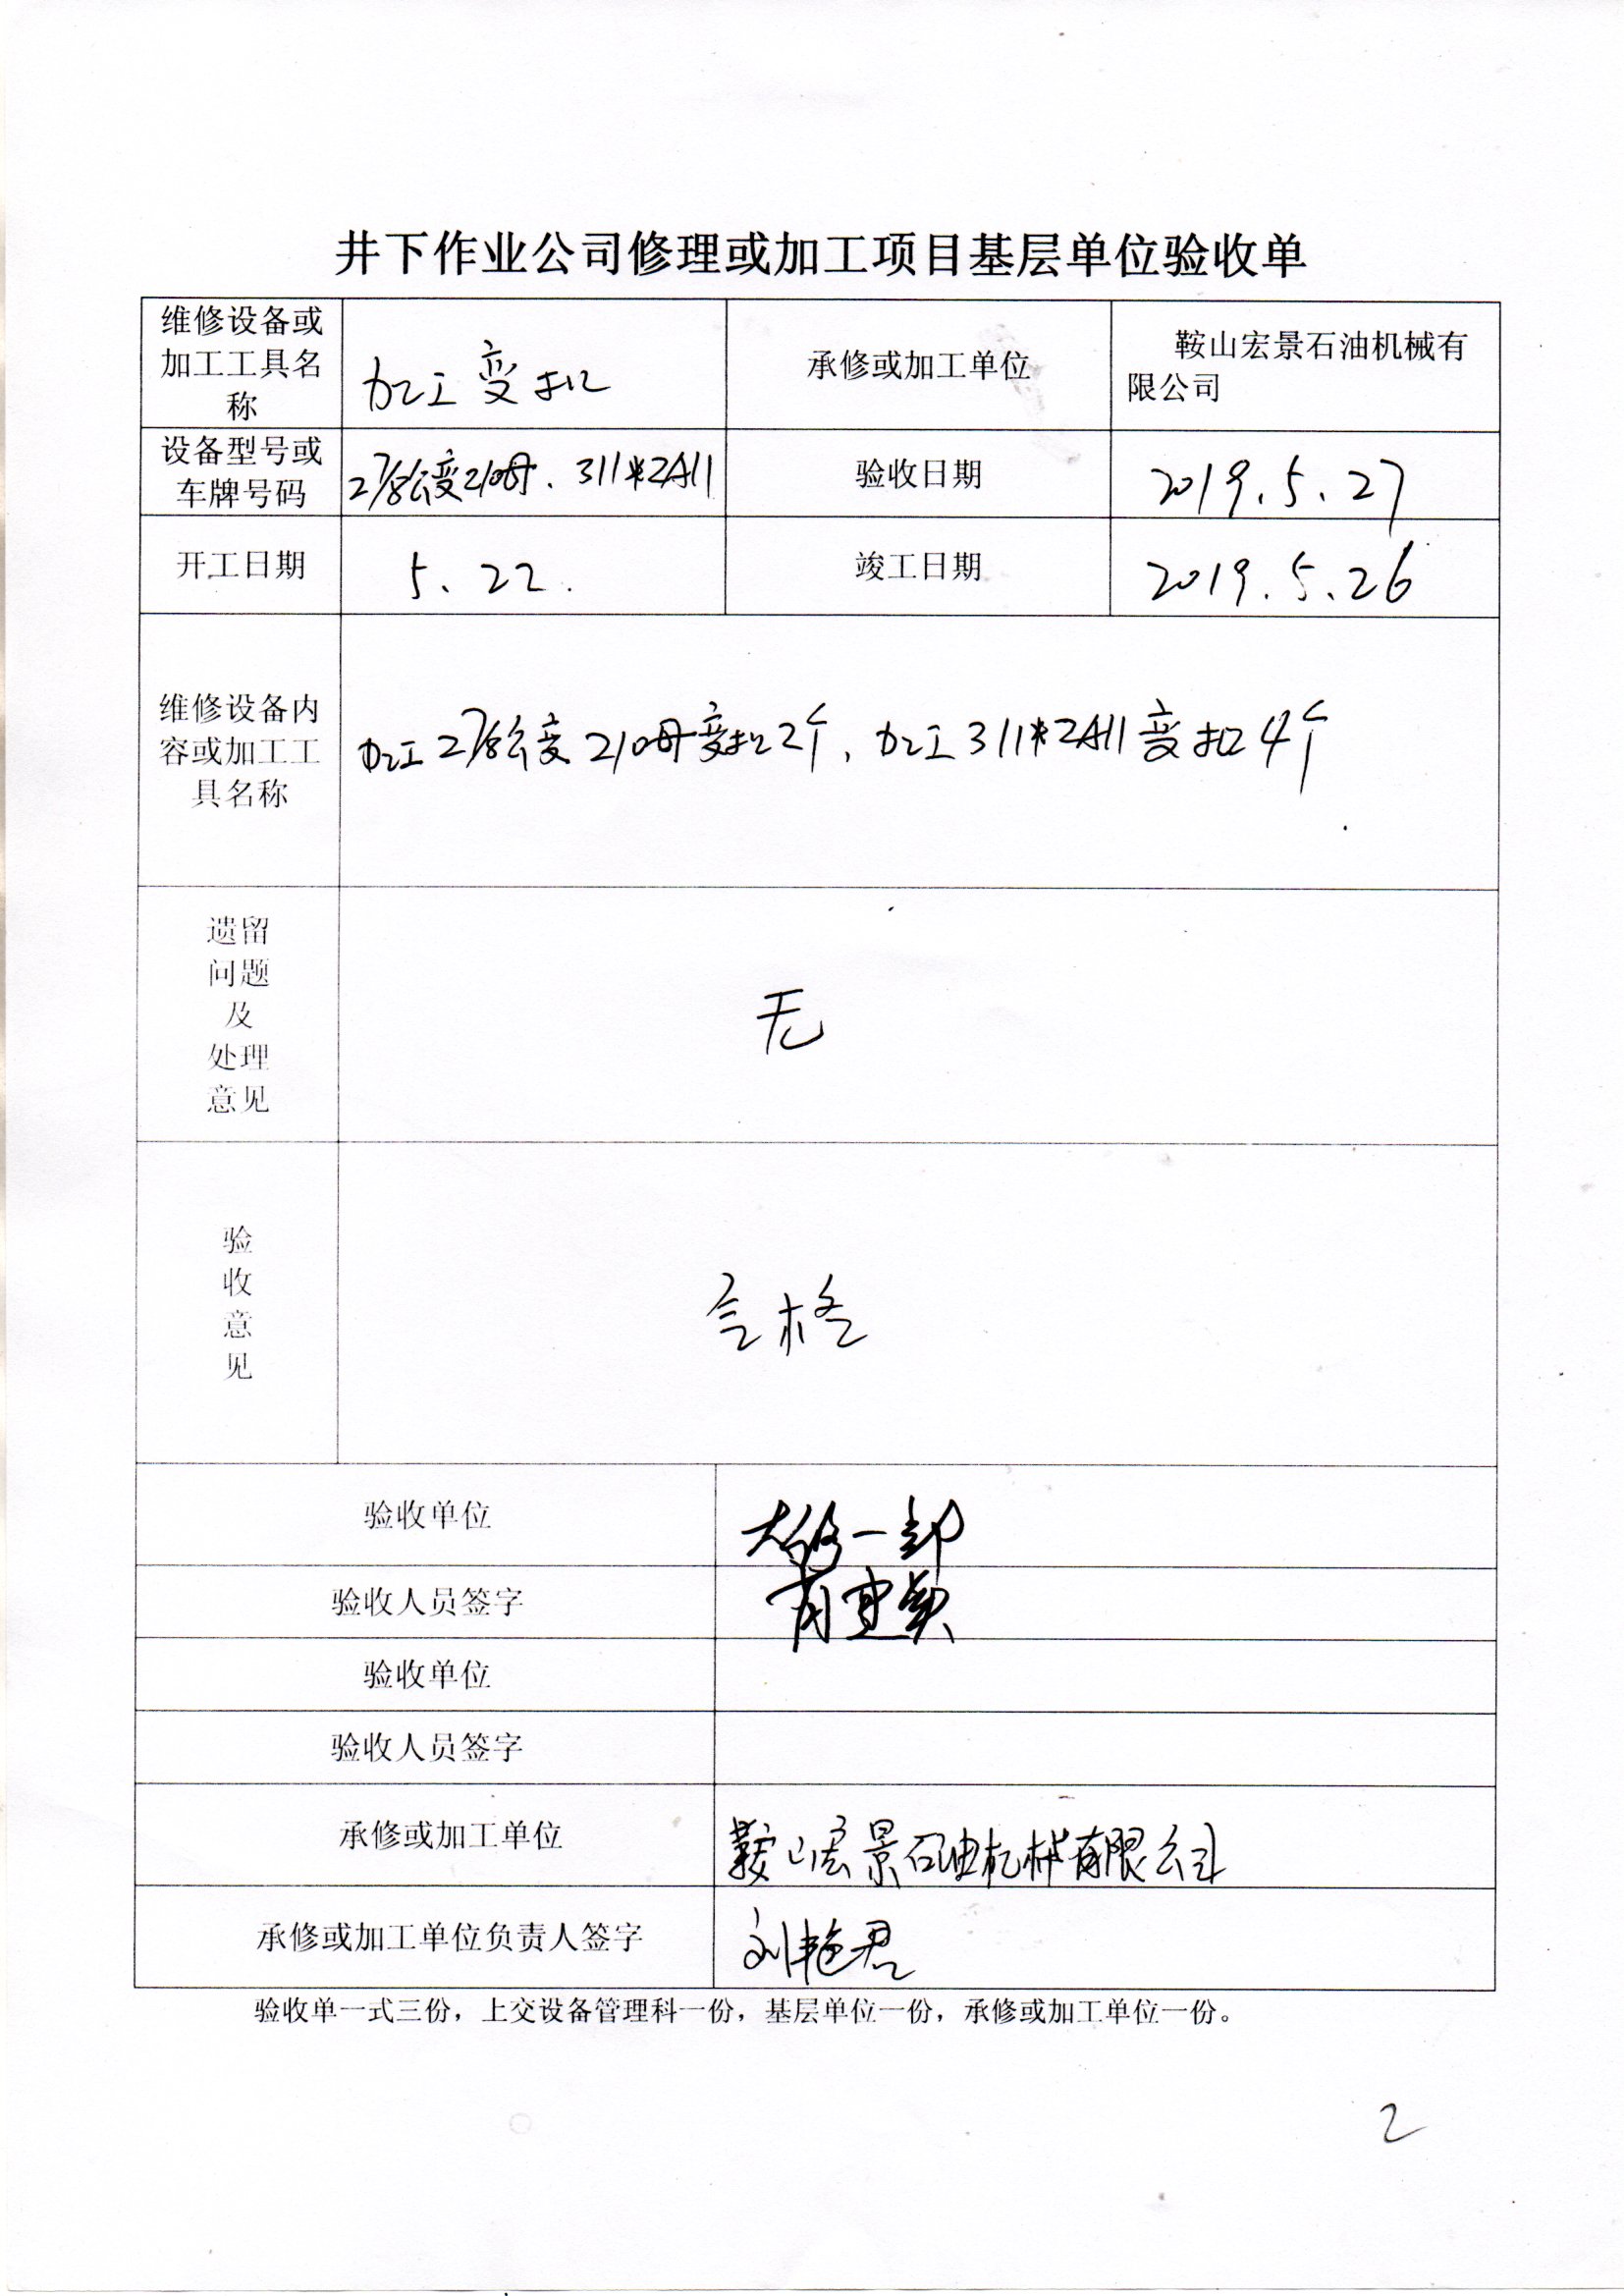 井下作业公司修理或加工项目基层单位验收单
维修设备或
加工工具名
称
加工变扣
承修或加工单位
鞍山宏景石油机械有
限公司
设备型号或
车牌号码
2 7/8公变210母、311*2A11
验收日期
2019.5.27
开工日期
5.22.
竣工日期
2019.5.26
维修设备内
容或加工工
具名称
加工2 7/8公变210母变扣2个,加工311*2A11变扣4个
遗留
问题
及
处理
意见
无
验
收
意
见
合格
验收单位
大修一部
验收人员签字
验收单位
验收人员签字
承修或加工单位
鞍山宏景石油机械有限公司
承修或加工单位负责人签字
刘艳君
验收单一式三份，上交设备管理科一份，基层单位一份，承修或加工单位一份。
2